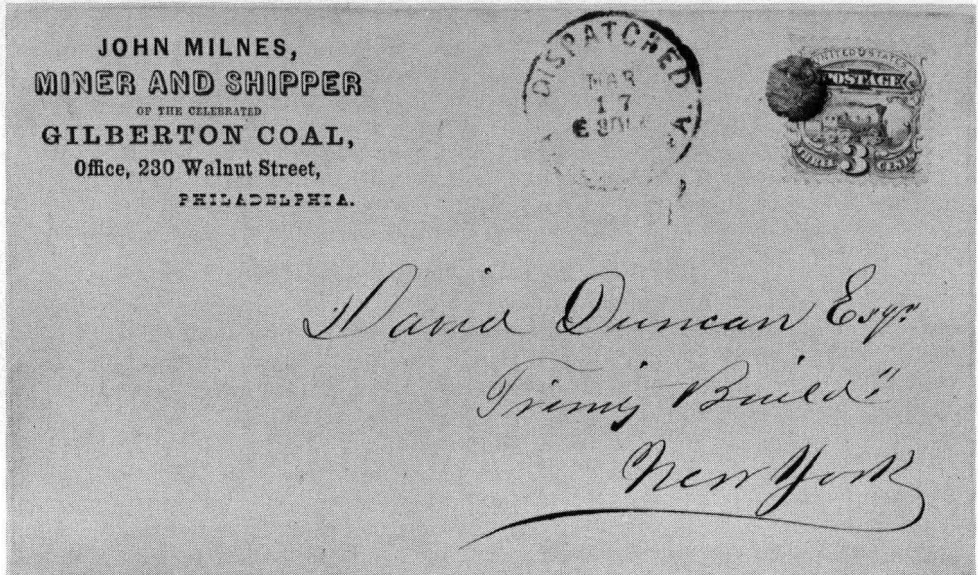 JOHN MILNES,
MINER AND SHIPPER
OF THE CELEBRATED
GILBERTON COAL,
Office, 230 Walnut Street,
PHILADELPHIA.
DISPATCHED
MAR
17
A.
UNITED STATES
POSTAGE
THREE 3 CENTS
David Duncan Esqr
Trinity Build"
New York